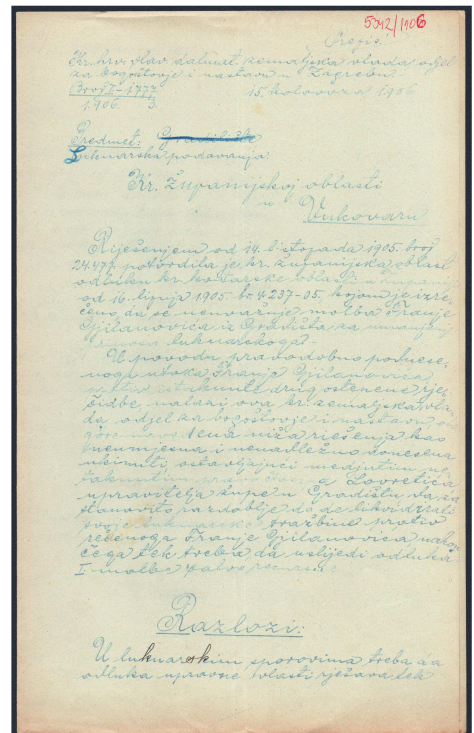 5042/1906
Prepis.
Kr. hrv. slav. dalmat. zemaljska vlada, odjel
za bogoštovje i nastavu u Zagrebu.
Broj II-1777
1906. 3
15. kolovoza 1906
Predmet: Gradište
Luknarska podavanja.
Kr. županijskoj oblasti
u
Vukovaru
Riješenjem od 14. listopada 1905. broj
potvrdila je kr. županijska oblast
odluku kr. kotarske oblasti u Županji
od 16. lipnja 1905. br. 4.237-05. kojom je izre-
čeno da se neuvažuje molba Franje
Gjilanovića iz Gradišta za
luknarskoga.
U povodu pravodobno podnese-
noga utoka Franje Gjilanovića
protiv drugostepene rje-
šidbe, nalazi ova kr. zemaljska vla-
da odjel za bogoštovje i nastavu
gore navedena niža riešenja kao
neumjesna i nenadležno donesena
ukinuti, ostavljajući medjutim
Lovretića
upravitelja župe u Gradištu da za
stanovito razdoblje dade likvidirati
svoje luknarske tražbine protiv
rečenoga Franje Gjilanovića nakon
čega tek treba da uslijedi odluka
I. molbe
Razlozi:
U luknarskim sporovima treba da
odluka upravne vlasti rješava tek